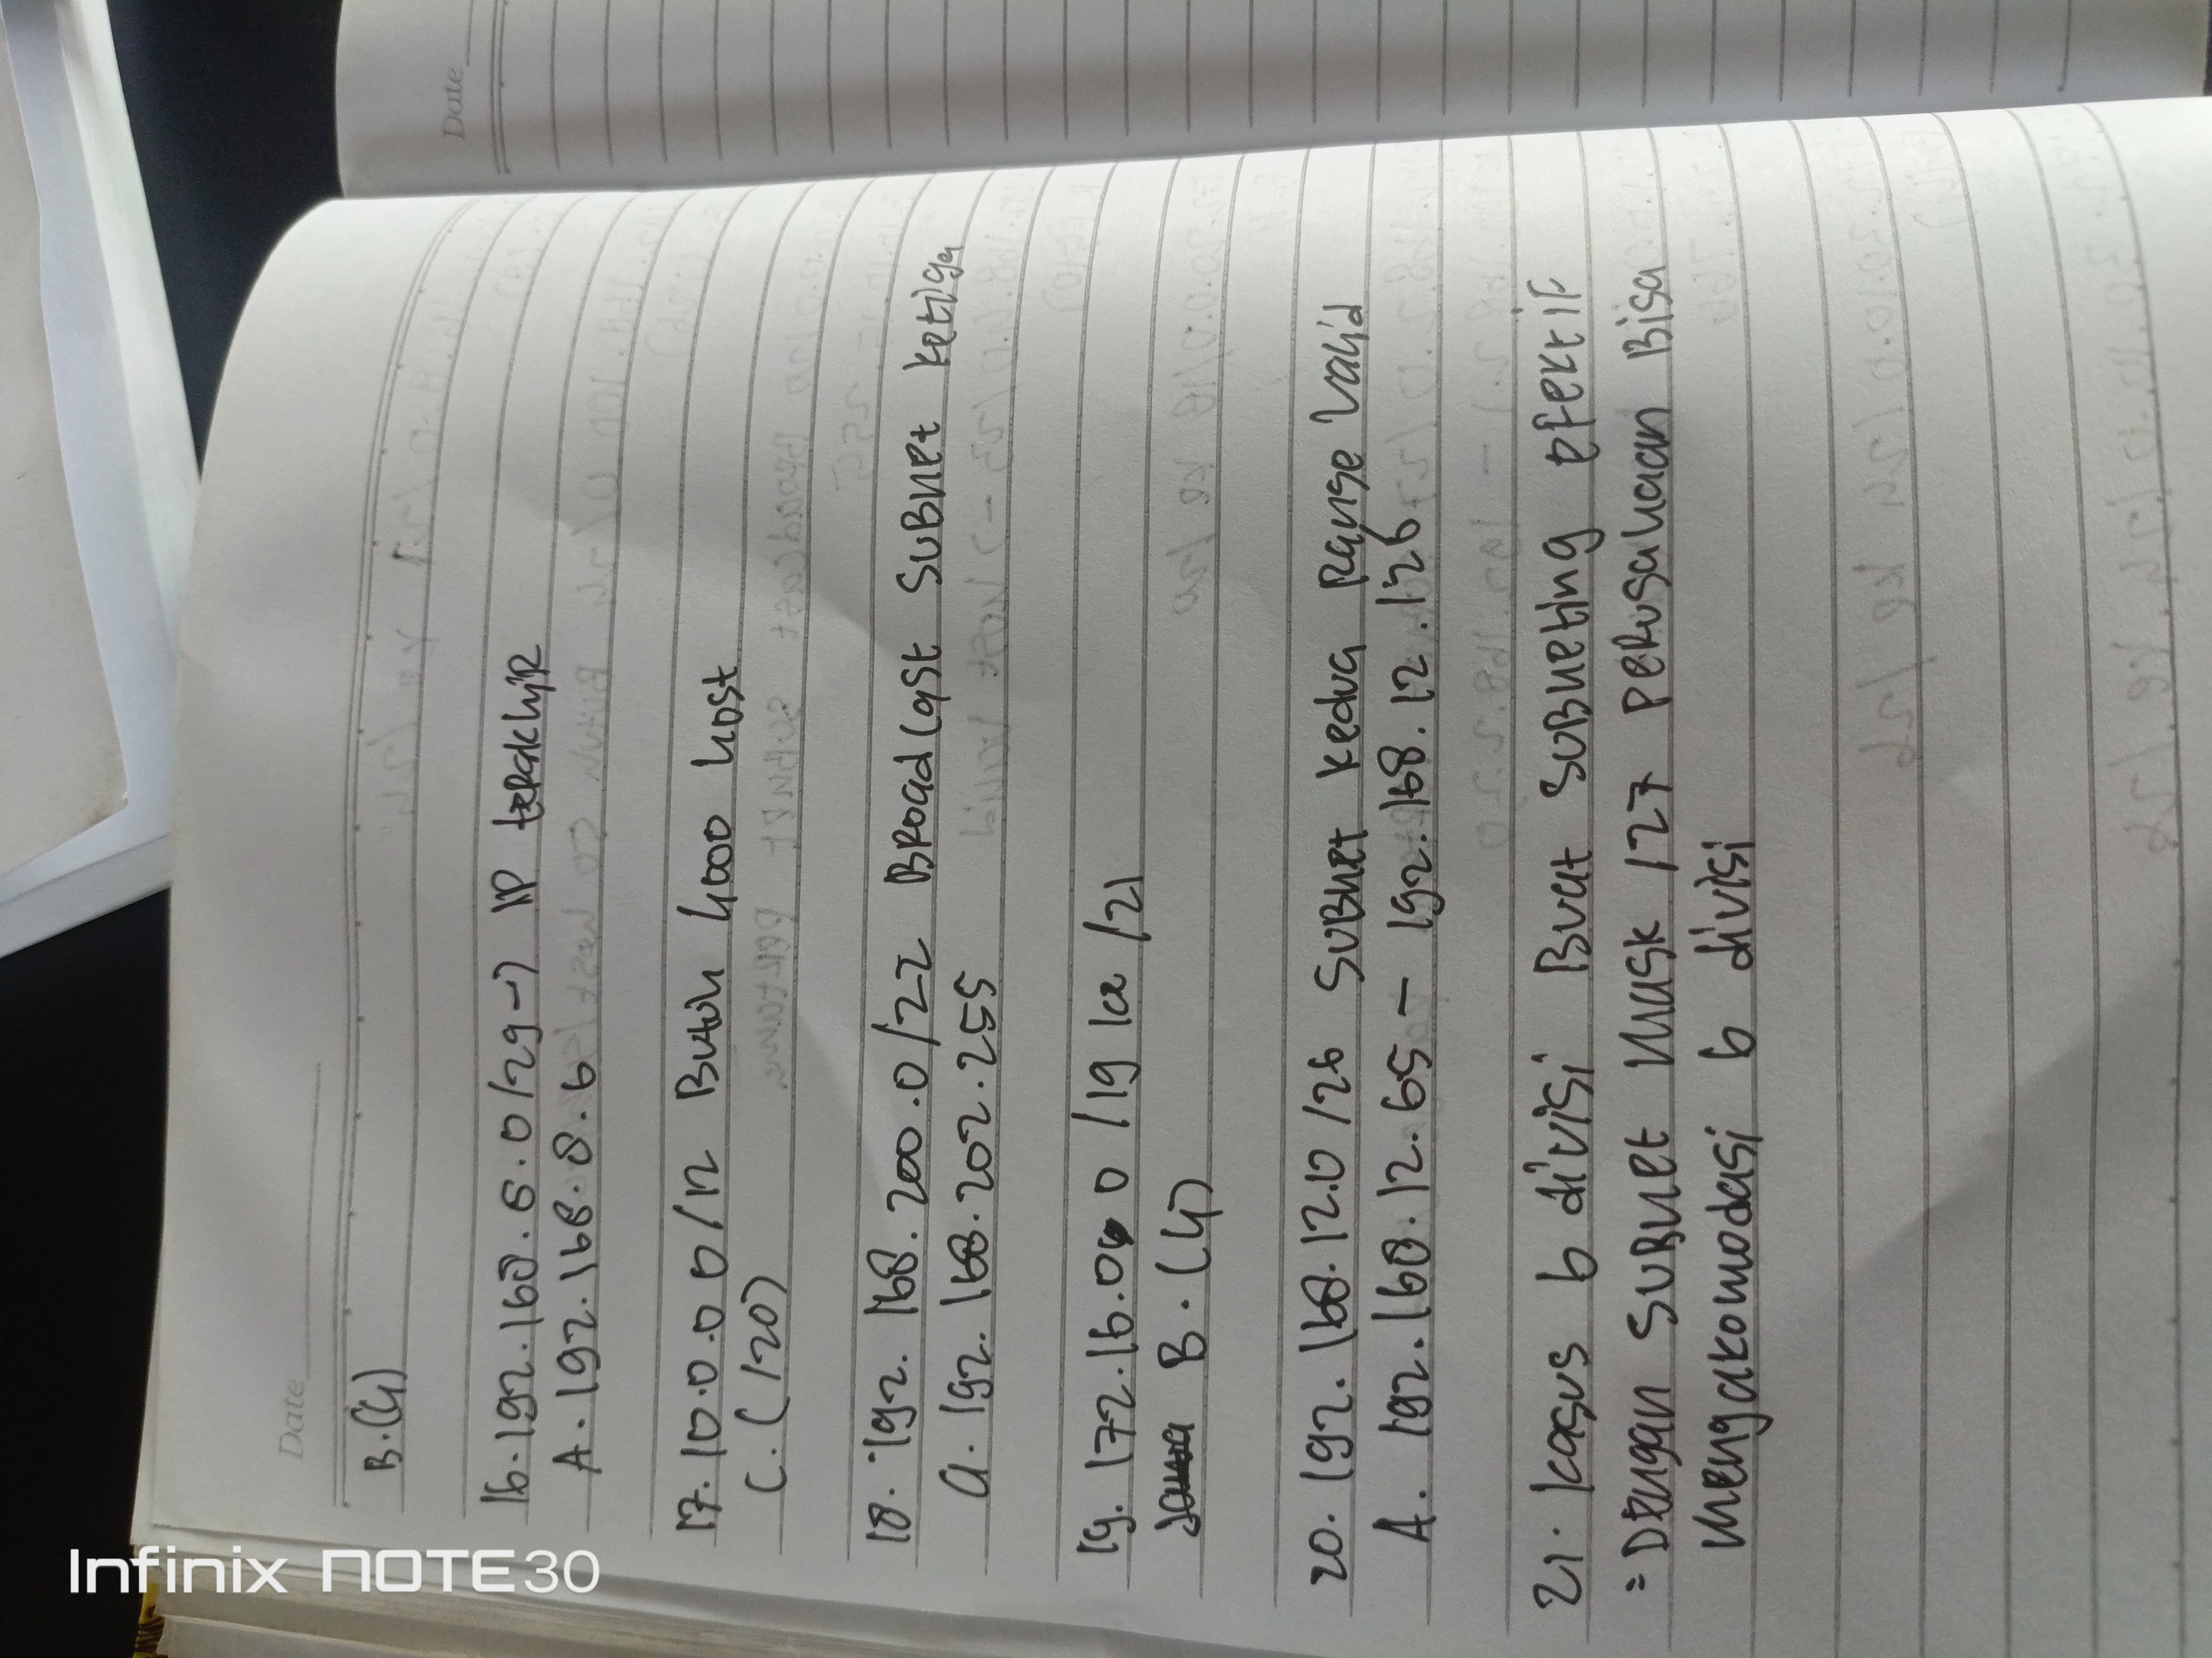 Date
Date
B.(4)
16. 192.168.8.0/29 -> IP terakhir
A. 192.168.8.6
17. 10.0.0.0/12 Butuh 4000 host
C. (/20)
18. 192.168.200.0/22 Broadcast subnet ketiga
a. 192.168.202.255
19. 172.16.0 0/19 ke /21
B. (4)
20. 192.168.12.0/26 subnet kedua range valid
A. 192.168.12.65 - 192.168.12.126
21. Kasus 6 divisi Buat subneting efektif
= Dengan subnet mask /27 perusahaan Bisa
mengakomodasi 6 divisi
Infinix NOTE 30